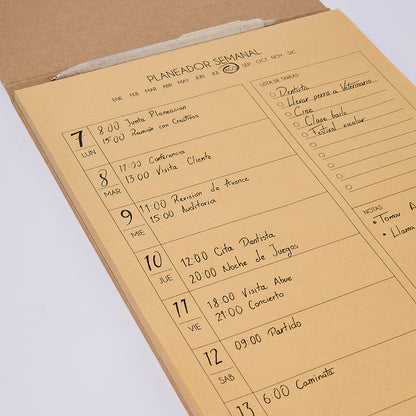 PLANEADOR SEMANAL
ENE FEB MAR ABR MAY JUN JUL AGO SEP OCT NOV DIC
7 LUN
8:00 Junta Planeacion
15:00 Reunión con Creativos
8 MAR
11:00 Conferencia
13:00 Visita Cliente
9 MIE
11:00 Revisión de Avance
15:00 Auditoria
10 JUE
12:00 Cita Dentista
20:00 Noche de Juegos
11 VIE
18:00 Visita Abue
21:00 Concierto
12 SAB
09:00 Partido
13
6:00 Caminata
LISTA DE TAREAS
Dentista
Llevar perra a Veterinaria
Cine
Clase baile
Festival escolar
NOTAS
• Tomar
• Llama